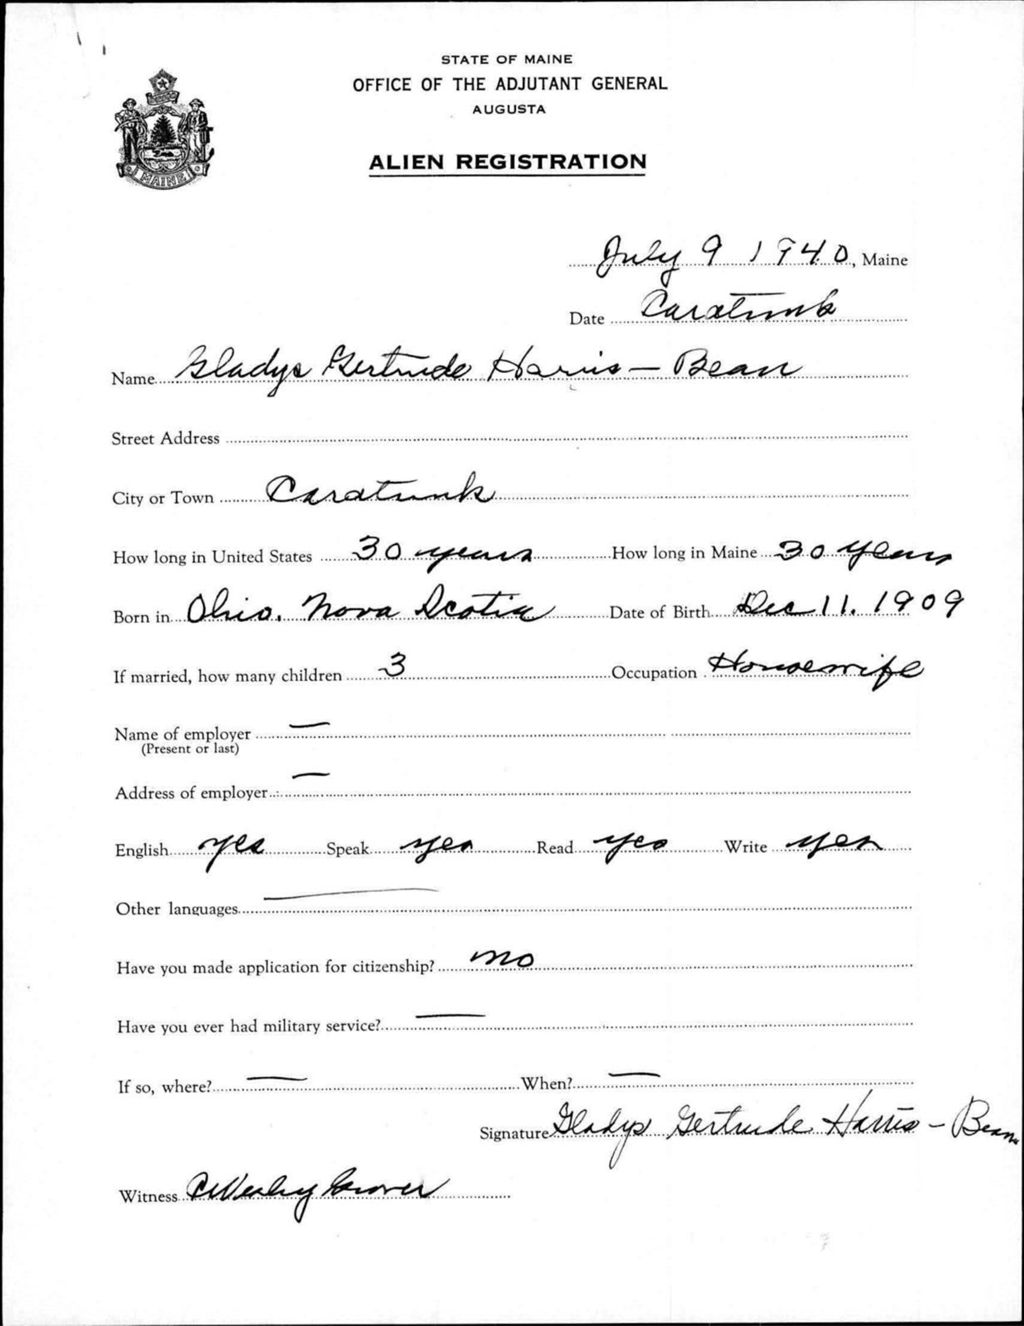 STATE OF MAINE
OFFICE OF THE ADJUTANT GENERAL
AUGUSTA
MAINE
ALIEN REGISTRATION
July 9 1940, Maine
Date Caratunk
Name Gladys Gertrude Harris - Bean
Street Address
City or Town Caratunk
How long in United States 30 years How long in Maine 30 years
Born in Ohio, Nova Scotia Date of Birth Dec 11. 1909
If married, how many children 3 Occupation Housewife
Name of employer —
(Present or last)
Address of employer —
English yes Speak yes Read yes Write yes
Other languages —
Have you made application for citizenship? no
Have you ever had military service? —
If so, where? — When? —
Signature Gladys Gertrude Harris - Bean
Witness Wesley Grover